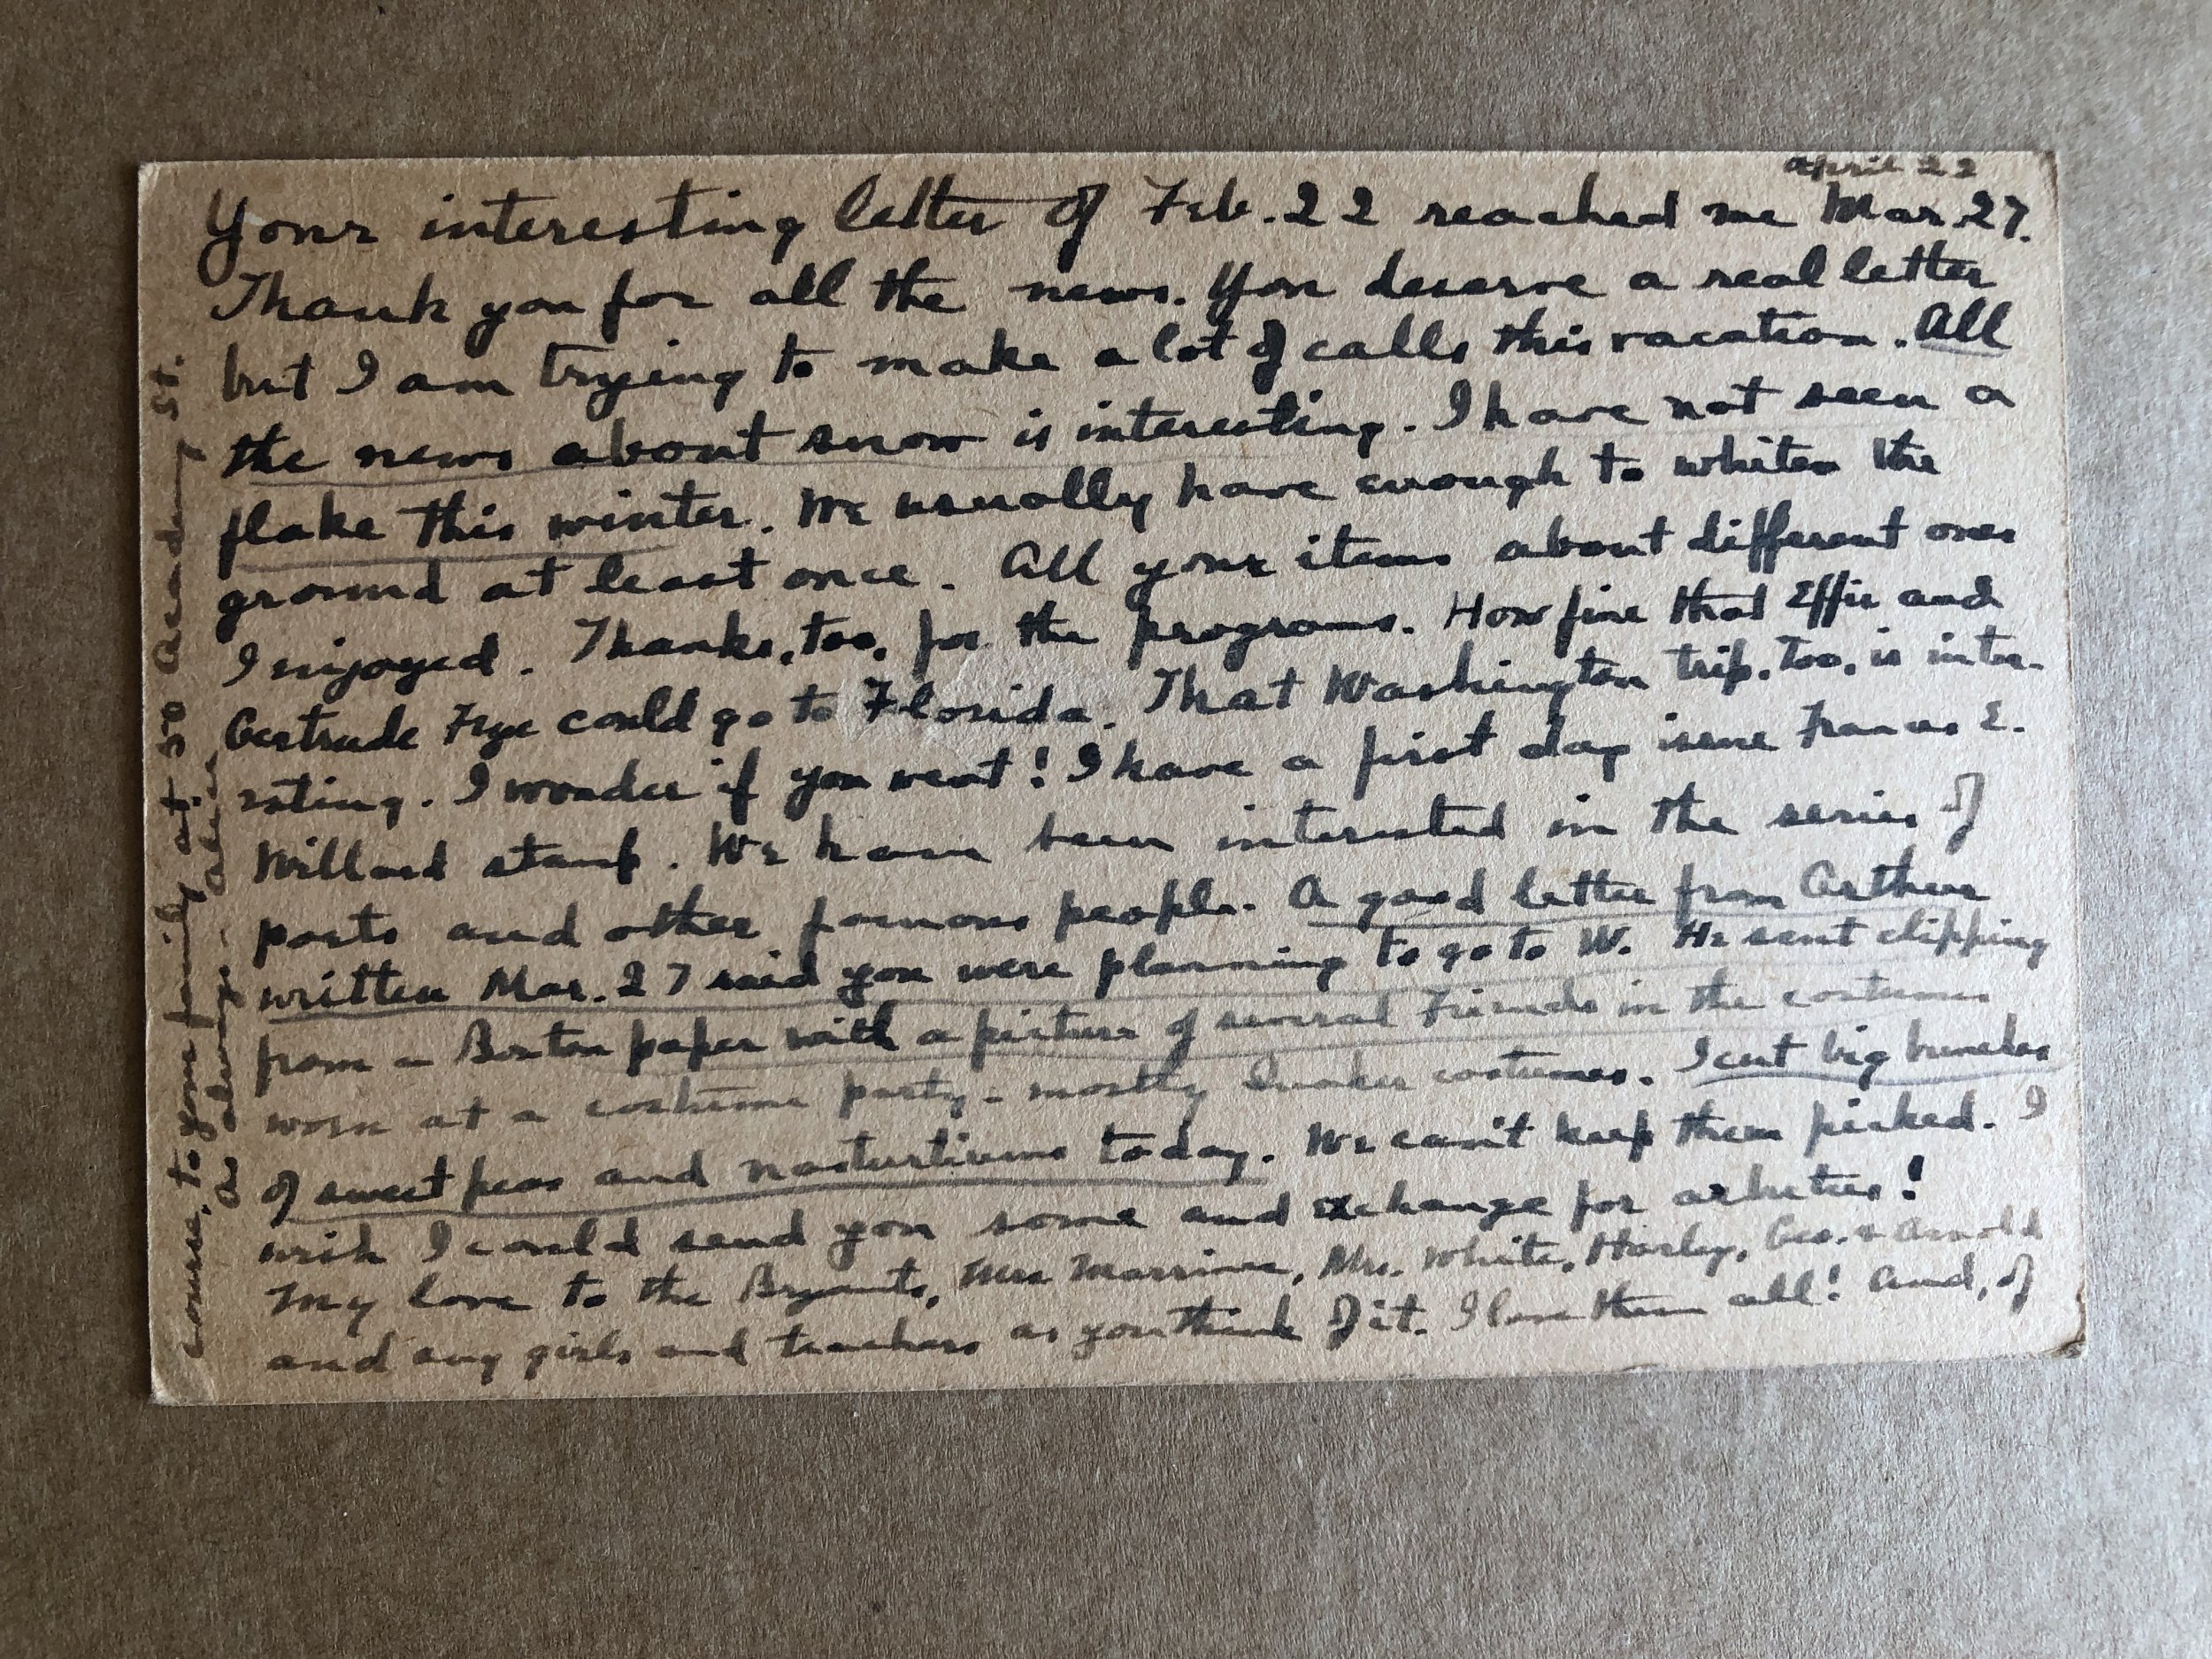 April 22
Your interesting letter of Feb. 22 reached me Mar. 27.
Thank you for all the news. You deserve a real letter
but I am trying to make a lot of calls this vacation. All
the news about snow is interesting. I have not seen a
flake this winter. We usually have enough to whiten the
ground at least once. All your items about different ones
I enjoyed. Thanks, too, for the programs. How fine that Effie and
Gertrude Frye could go to Florida. That Washington trip, too, is inter-
esting. I wonder if you went! I have a first day issue Frances E.
Willard stamp. We have been interested in the series of
poets and other famous people. A good letter from Arthur
written Mar. 27 said you were planning to go to W. He sent clipping
from a Boston paper with a picture of several Friends in the costumes
worn at a costume party - mostly Quaker costumes. I cut big bunches
of sweet peas and nasturtiums today. We can't keep them picked. I
wish I could send you some and exchange for arbutus!
My love to the Bryants, Mrs. White, Harley, Geo. & Arnold
and any girls and teachers as you think fit. I love them all! And, of
course, to your family at 50 Academy St.
As always - Alice